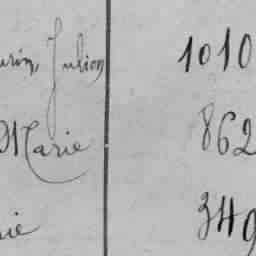 Julien 1010
Marie 862
349